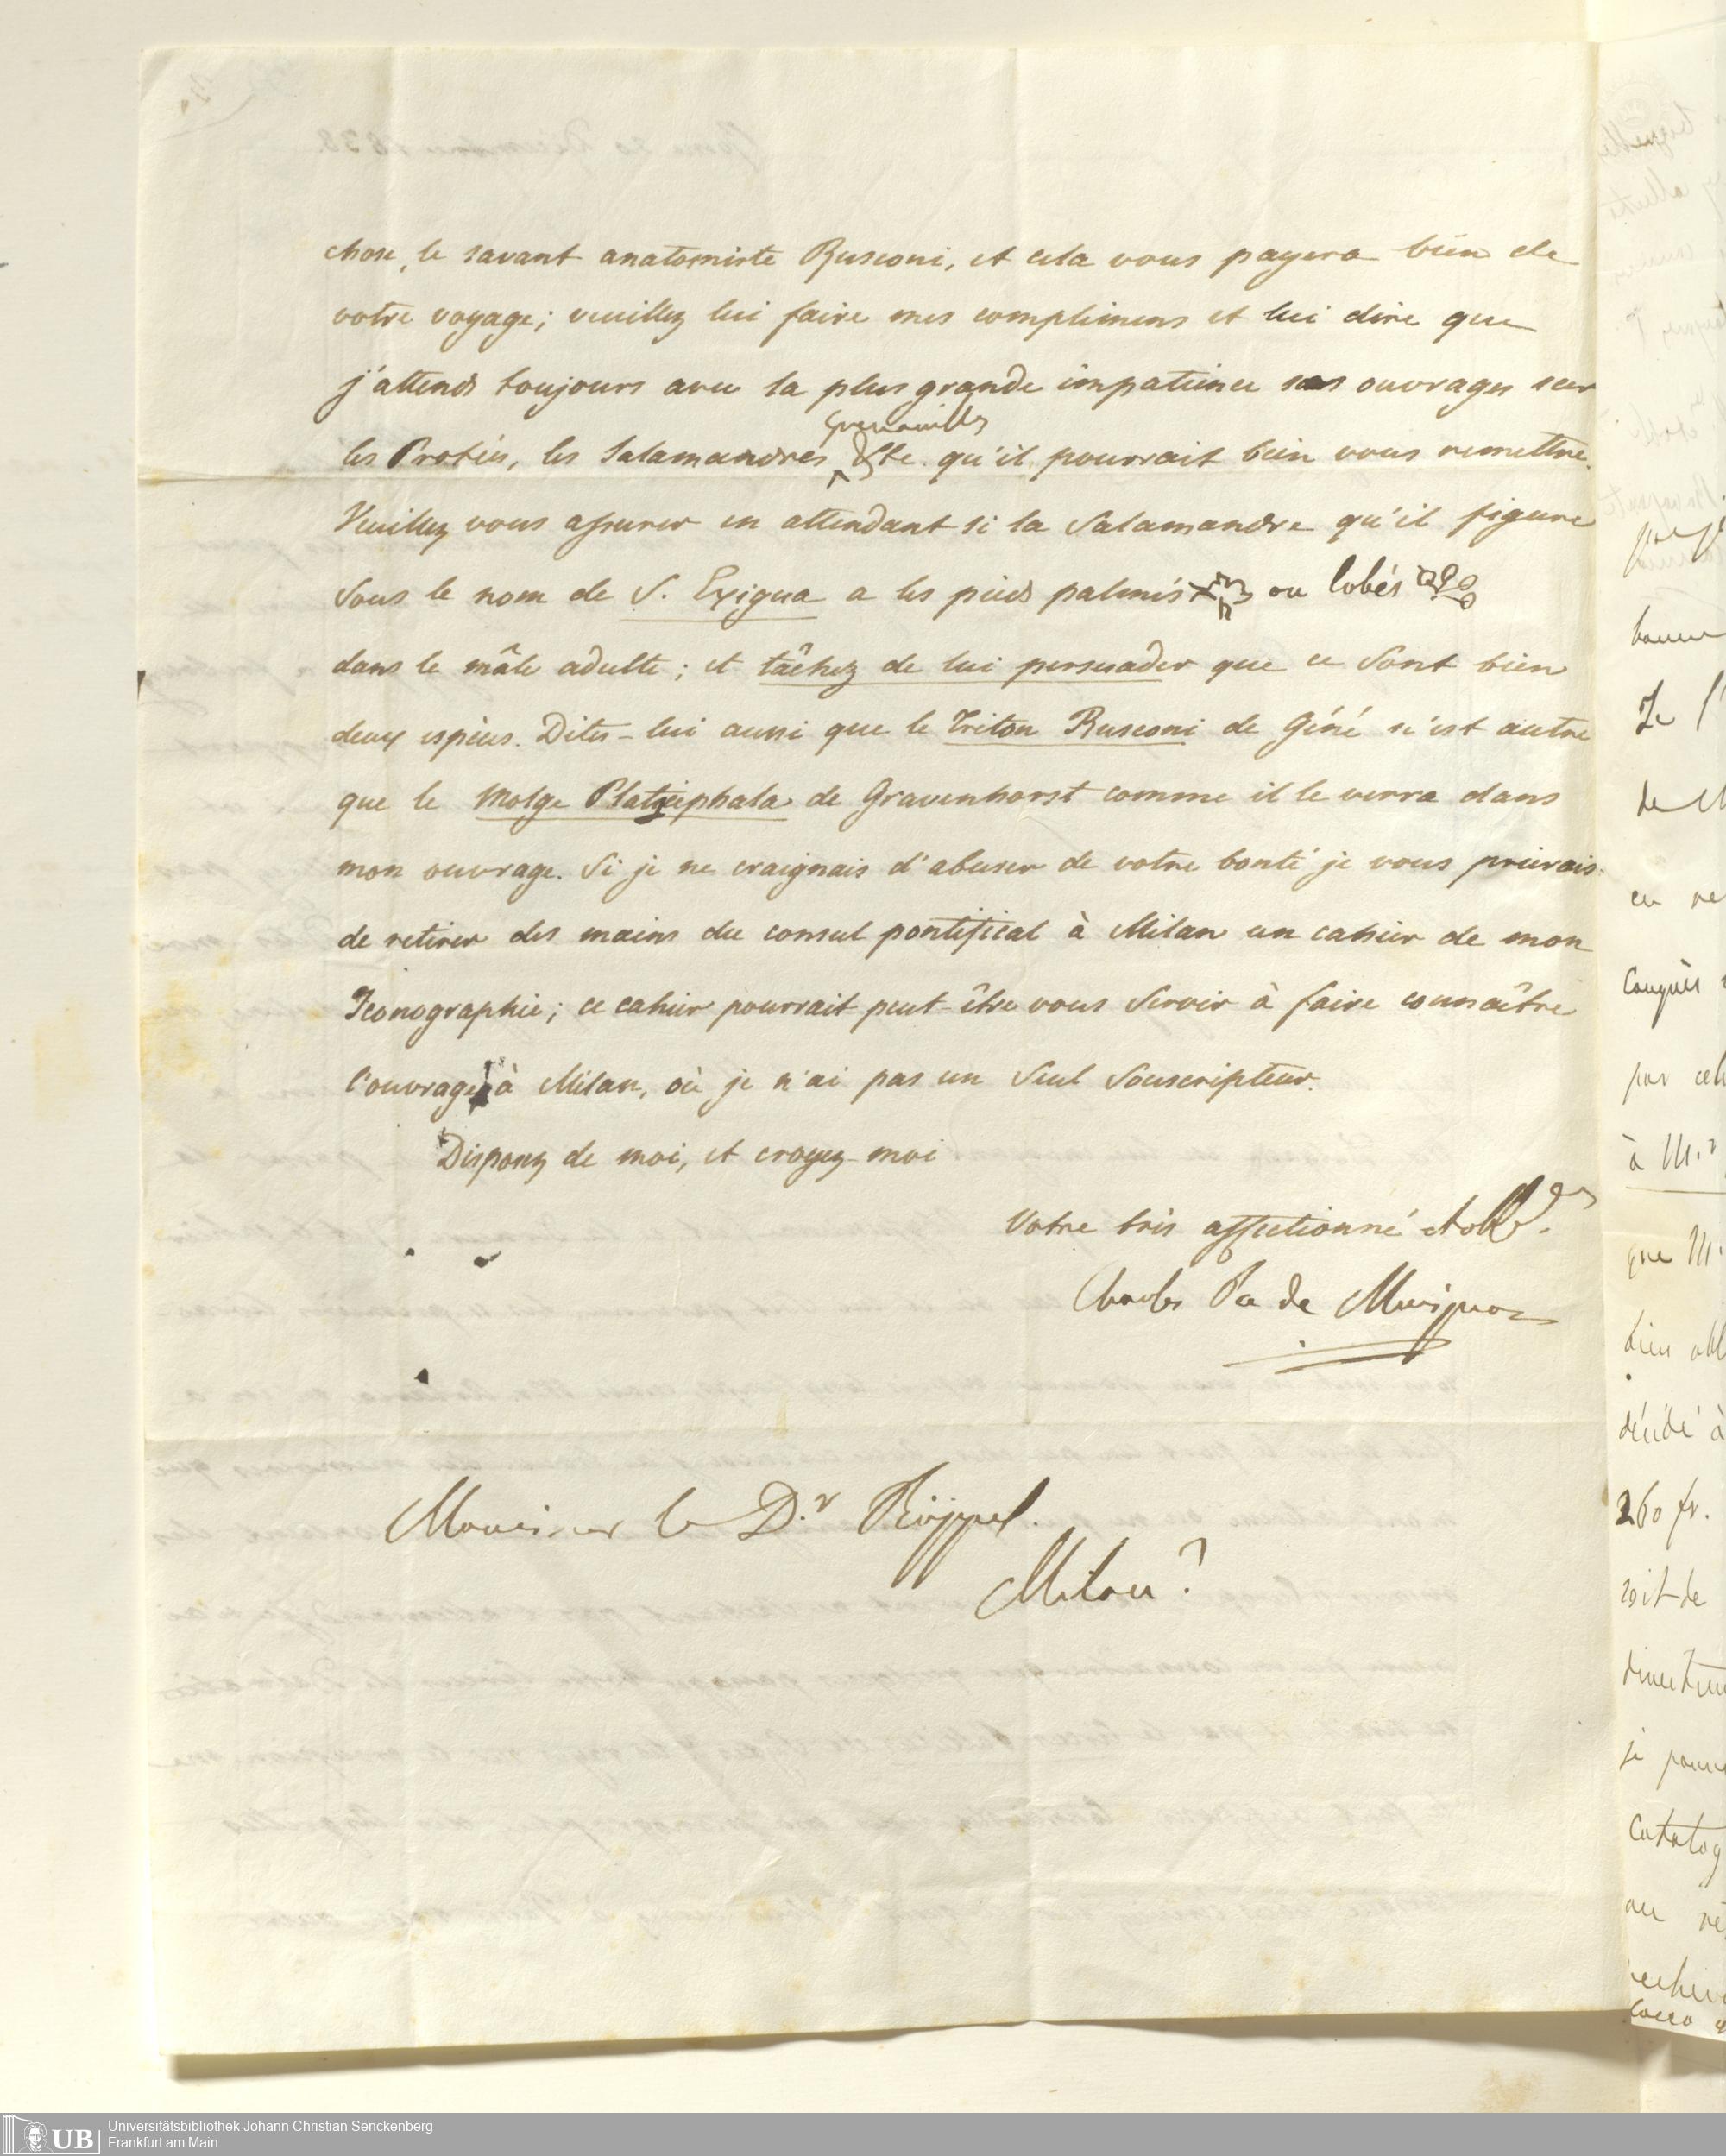 chose, le savant anatomiste Rusconi, et cela vous payera bien de
votre voyage; veuillez lui faire mes complimens et lui dire que
j'attends toujours avec la plus grande impatience ses ouvrages sur
grenouilles
les Protées, les Salamandres, &tc. qu'il pourrait bien vous remettre.
Veuillez vous assurer en attendant si la Salamandre qu'il figure
sous le nom de S. Exigua a les pieds palmés ou lobés
dans le mâle adulte; et tâchez de lui persuader que ce sont bien
deux espèces. Dites-lui aussi que le Triton Rusconi de Géné n'est autre
que le Molge Platycephala de Gravenhorst comme il le verra dans
mon ouvrage. Si je ne craignais d'abuser de votre bonté je vous prierais
de retirer des mains du consul pontifical à Milan un cahier de mon
Iconographie; ce cahier pourrait peut-être vous servir à faire connaître
l'ouvrage à Milan, où je n'ai pas un seul souscripteur.
Disposez de moi, et croyez-moi
Votre très affectionné et
Charles de Musignano
Monsieur le D.r Rüppel.
Milan?
de
en
par
à M.r
que M.
bien
décidé à
260 fr.
soit de
je
au
UB Universitätsbibliothek Johann Christian Senckenberg
Frankfurt am Main